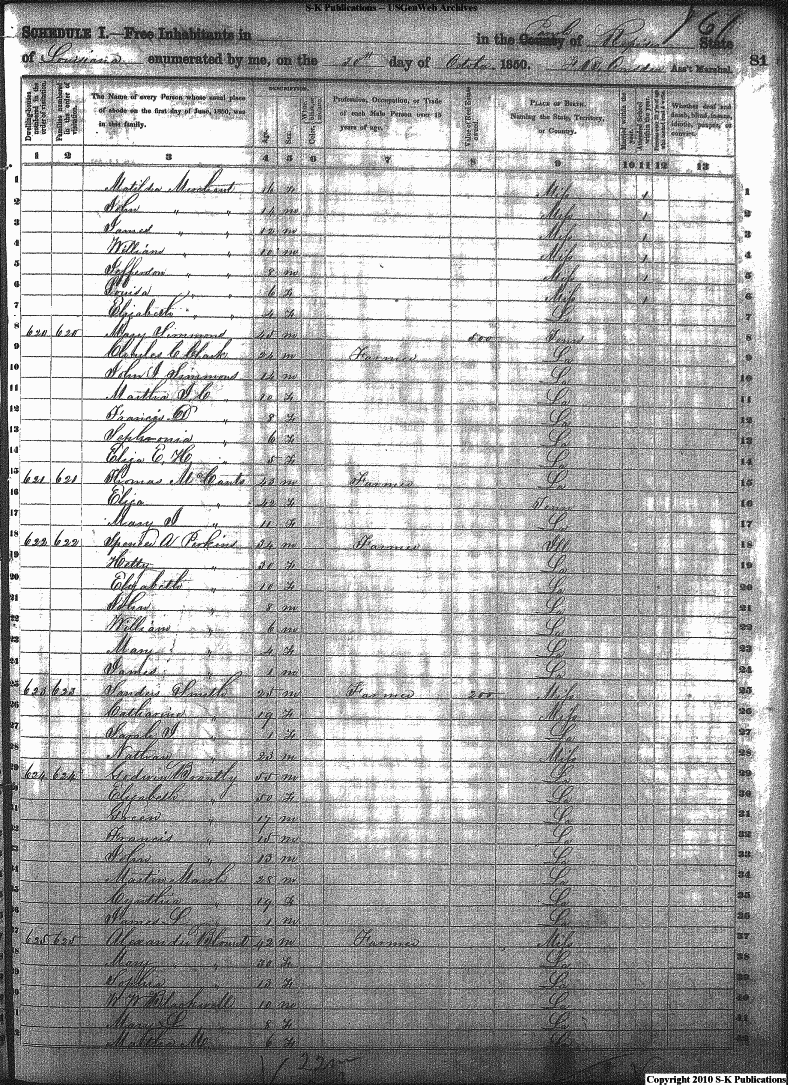 S-K Publications – USGenWeb Archives
SCHEDULE I.—Free Inhabitants in in the County of Rapides State
of Louisiana enumerated by me, on the 20th day of October 1850. Ass't Marshal. 81
DESCRIPTION.
Dwelling-houses numbered in the order of visitation. Families numbered in the order of visitation. The Name of every Person whose usual place of abode on the first day of June, 1850, was in this family. Age. Sex. Profession, Occupation, or Trade of each Male Person over 15 years of age. Value of Real Estate owned. PLACE OF BIRTH. Naming the State, Territory, or Country. Married within the year. Attended School within the year. Whether deaf and dumb, blind, insane, idiotic, pauper, or convict.
1 2 3 4 5 6 7 8 9 10 11 12 13
1 Matilda Merchant 16 f Miss 1 1
2 John " " 14 m Miss 1 2
3 James " " 12 m Miss 1 3
4 William " " 10 m Miss 1 4
5 Jefferson " " 8 m Miss 1 5
6 Louisa " " 6 f Miss 1 6
7 Elizabeth " " 4 f La 7
8 620 620 Mary Simmons 45 500 Tenn 8
9 Clark 24 m Farmer La 9
10 John Simmons 14 m La 10
11 Martha " 10 f La 11
12 Francis " 8 f La 12
13 Sephronia " 6 f La 13
14 Eliza E. H. " 5 f La 14
15 621 621 Thomas McCants 43 m Farmer La 15
16 Eliza " 42 f Tenn 16
17 Mary " 11 f La 17
18 622 622 Spencer A Perkins 34 m Farmer Ill 18
19 Hetty " 30 f La 19
20 Elizabeth " 10 f La 20
21 John " 8 m La 21
22 William " 6 m La 22
23 Mary " 4 f La 23
24 James " 1 m La 24
25 623 623 Sanders Smith 25 m Farmer 200 Miss 25
26 Catharine " 19 f Miss 26
27 Sarah " 1 f La 27
28 Nathan " 23 m Miss 28
624 624 Godwin Brantly 55 m La 29
Elizabeth " 50 f La 30
Green " 17 m La 31
Francis " 15 m La 32
John " 13 m La 33
Martin Marsh 28 m La 34
Cynthia " 19 f La 35
James L " 1 m La 36
625 625 Alexander Blount 42 m Farmer Miss 37
Mary " 30 f La 38
Sophia " 13 f La 39
W W Blackwell 10 m La 40
Mary L " 8 f La 41
Martha M " 6 f La 42
Copyright 2010 S-K Publications